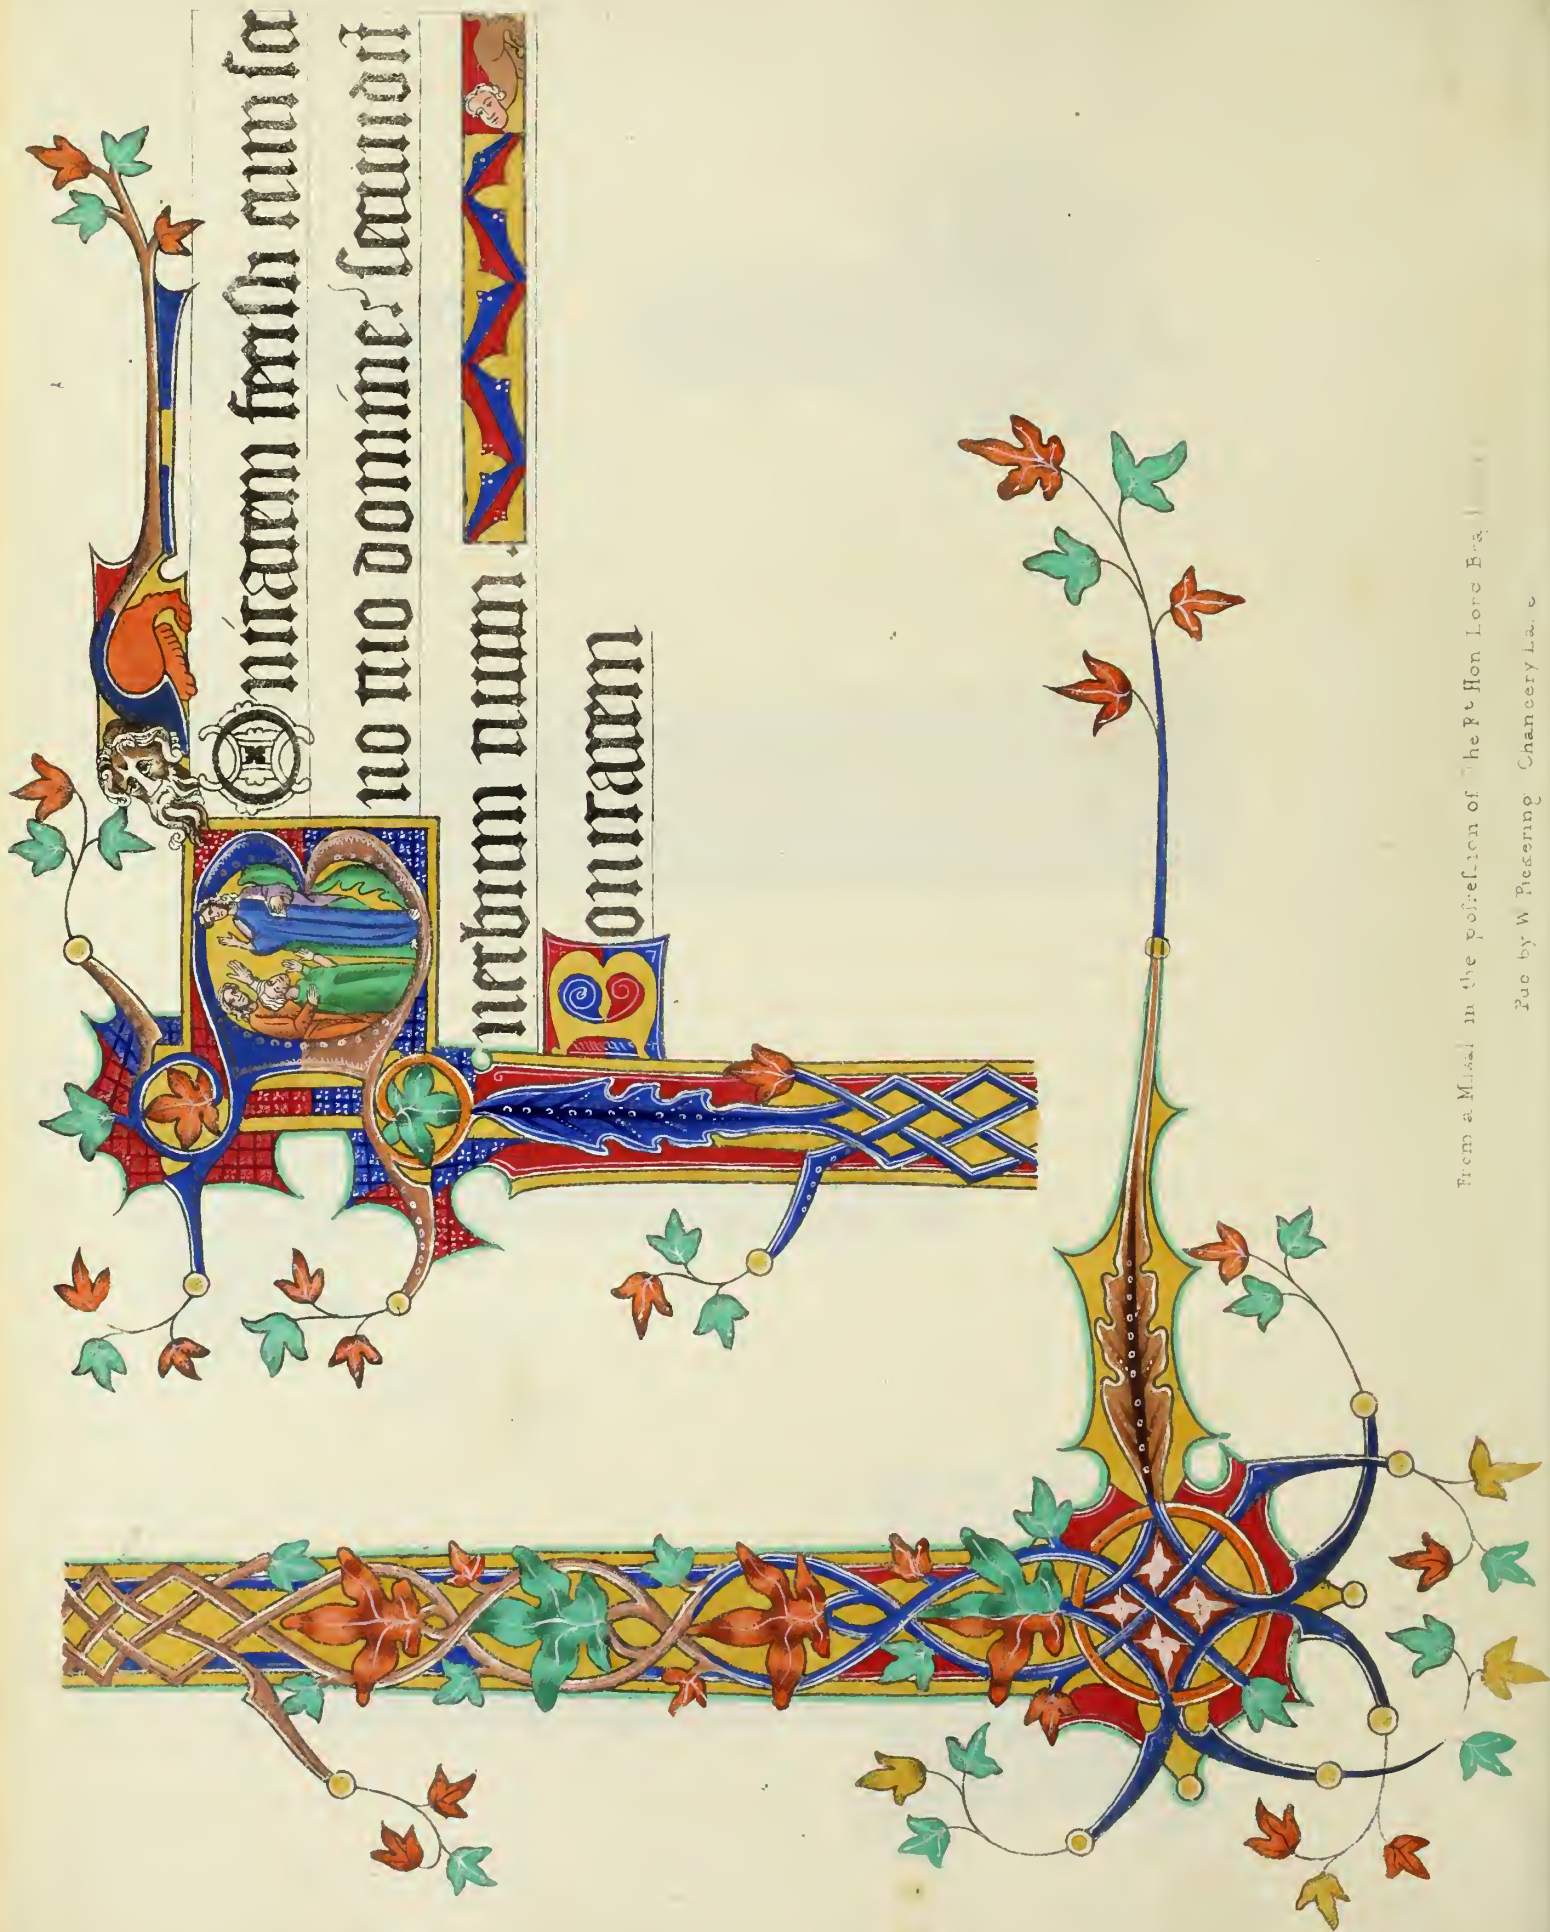 BOnitatem fecisti cum ser
uo tuo domine secundū
verbum tuum .
Bonitatem
From a Missal in the poſseſsion of the Rt Hon Lord
Pub by W Pickering Chancery Lane